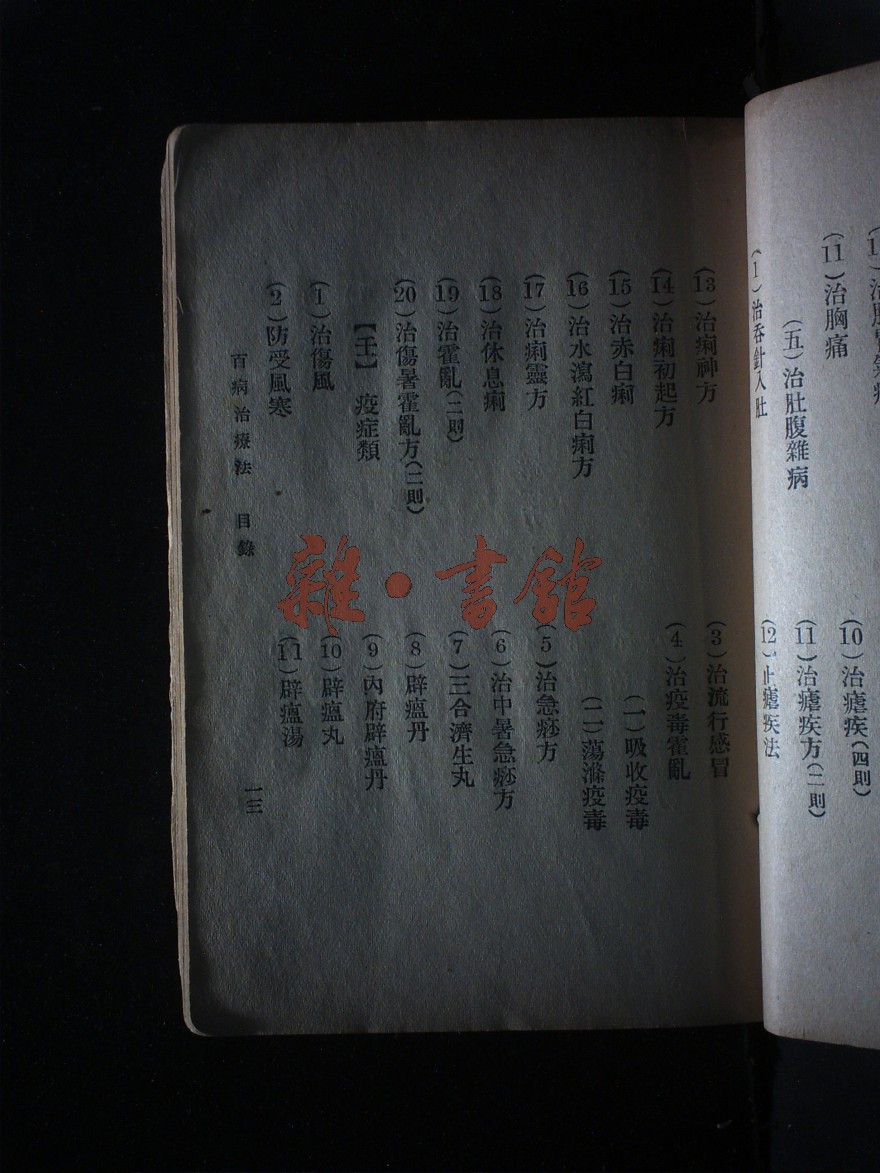 (11)治胸痛
(五)治肚腹雜病
(1)治吞針入肚
(10)治瘧疾(四則)
(11)治瘧疾方(二則)
(12)止瘧疾法
(13)治痢神方
(14)治痢初起方
(15)治赤白痢
(16)治水瀉紅白痢方
(17)治痢靈方
(18)治休息痢
(19)治霍亂(二則)
(20)治傷暑霍亂方(二則)
【壬】 疫症類
(1)治傷風
(2)防受風寒
(3)治流行感冒
(4)治疫毒霍亂
(一)吸收疫毒
(二)蕩滌疫毒
(5)治急痧方
(6)治中暑急痧方
(7)三合濟生丸
(8)辟瘟丹
(9)內府辟瘟丹
(10)辟瘟丸
(11)辟瘟湯
百病治療法 目錄
一三
雜·書館